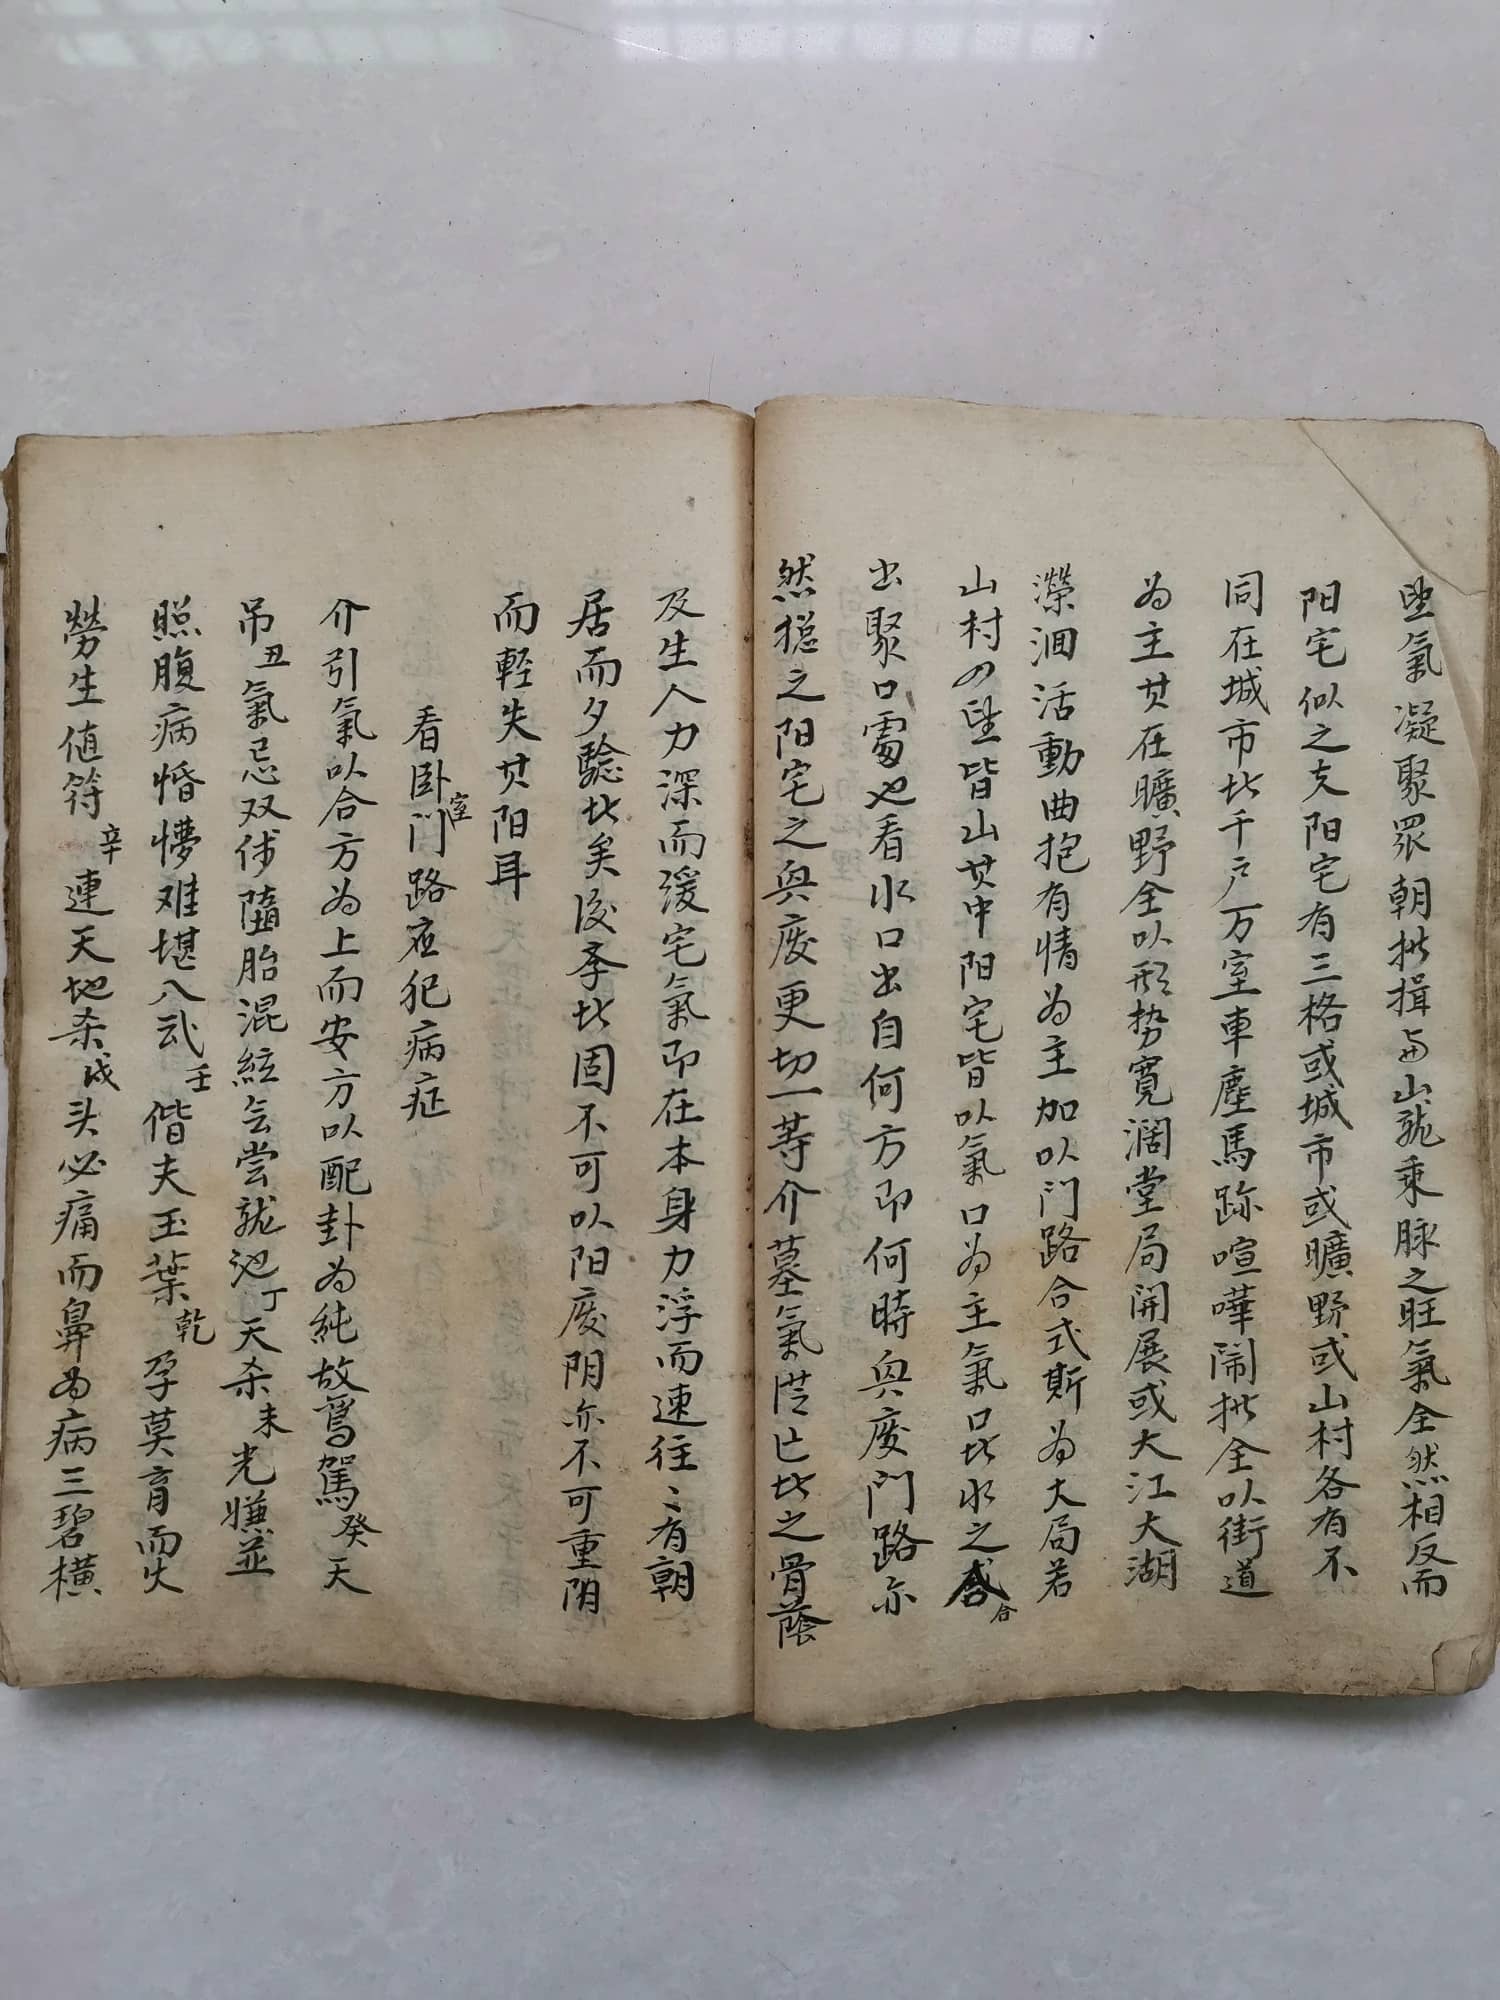 氣凝聚眾朝拱揖与山龍乘脉之旺氣全然相反而
阳宅似之夫阳宅有三格或城市或曠野或山村各有不
同在城市比千户万室車塵馬跡喧嘩鬧拱全以街道
为主其在曠野全以形势寛濶堂局開展或大江大湖
濚洄活動曲抱有情为主加以门路合式斯为大局若
山村皆山其中阳宅皆以氣口为主氣口比水之合
出聚口處也看水口出自何方即何時與废门路亦
然揔之阳宅之與废更切一等介墓氣從已比之骨蔭
及生人力深而湲宅氣即在本身力浮而速往〻有朝
居而夕驗比矣後季比固不可以阳废阴亦不可重阴
而輕失其阳耳
看卧室门路应犯病症
介引氣以合方为上而安方以配卦为純故鴛駕癸天
吊丑氣忌双侍隨胎混絃會嘗龍池丁天杀未光嫌並
照腹病惛懜难堪八武壬偕夫玉葉乾孕莫育而火
勞生值符辛連天地杀戌头必痛而鼻为病三碧橫